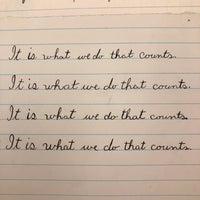 It is what we do that counts.
It is what we do that counts.
It is what we do that counts.
It is what we do that counts.